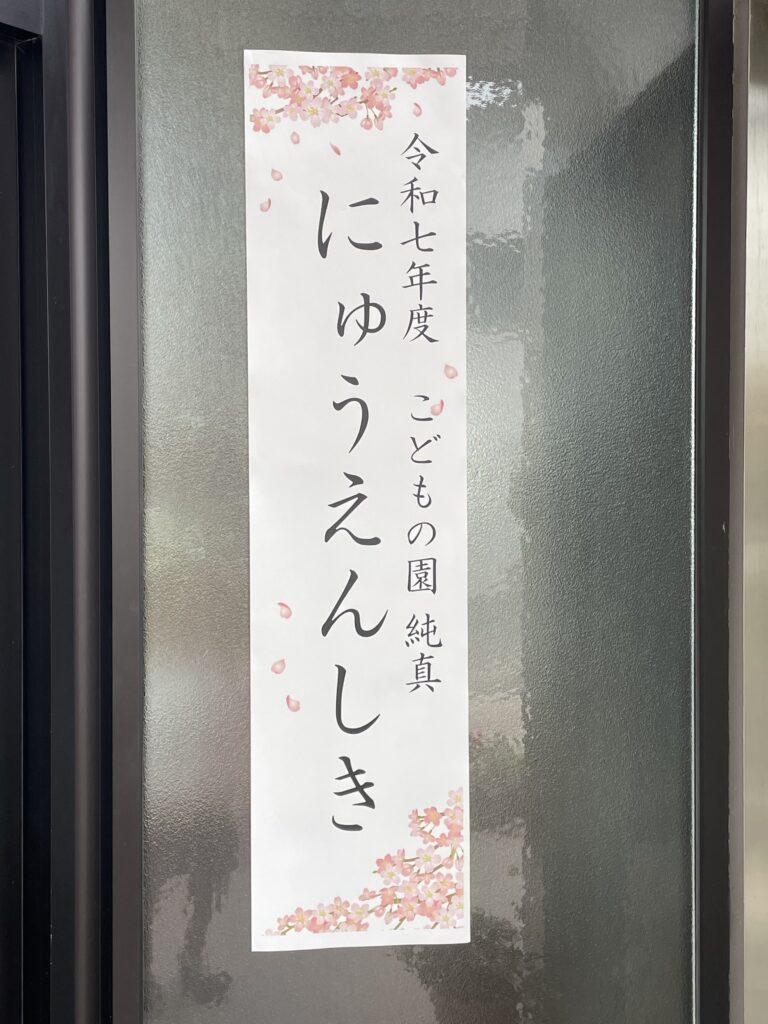 令和七年度 こどもの園 純真
にゅうえんしき